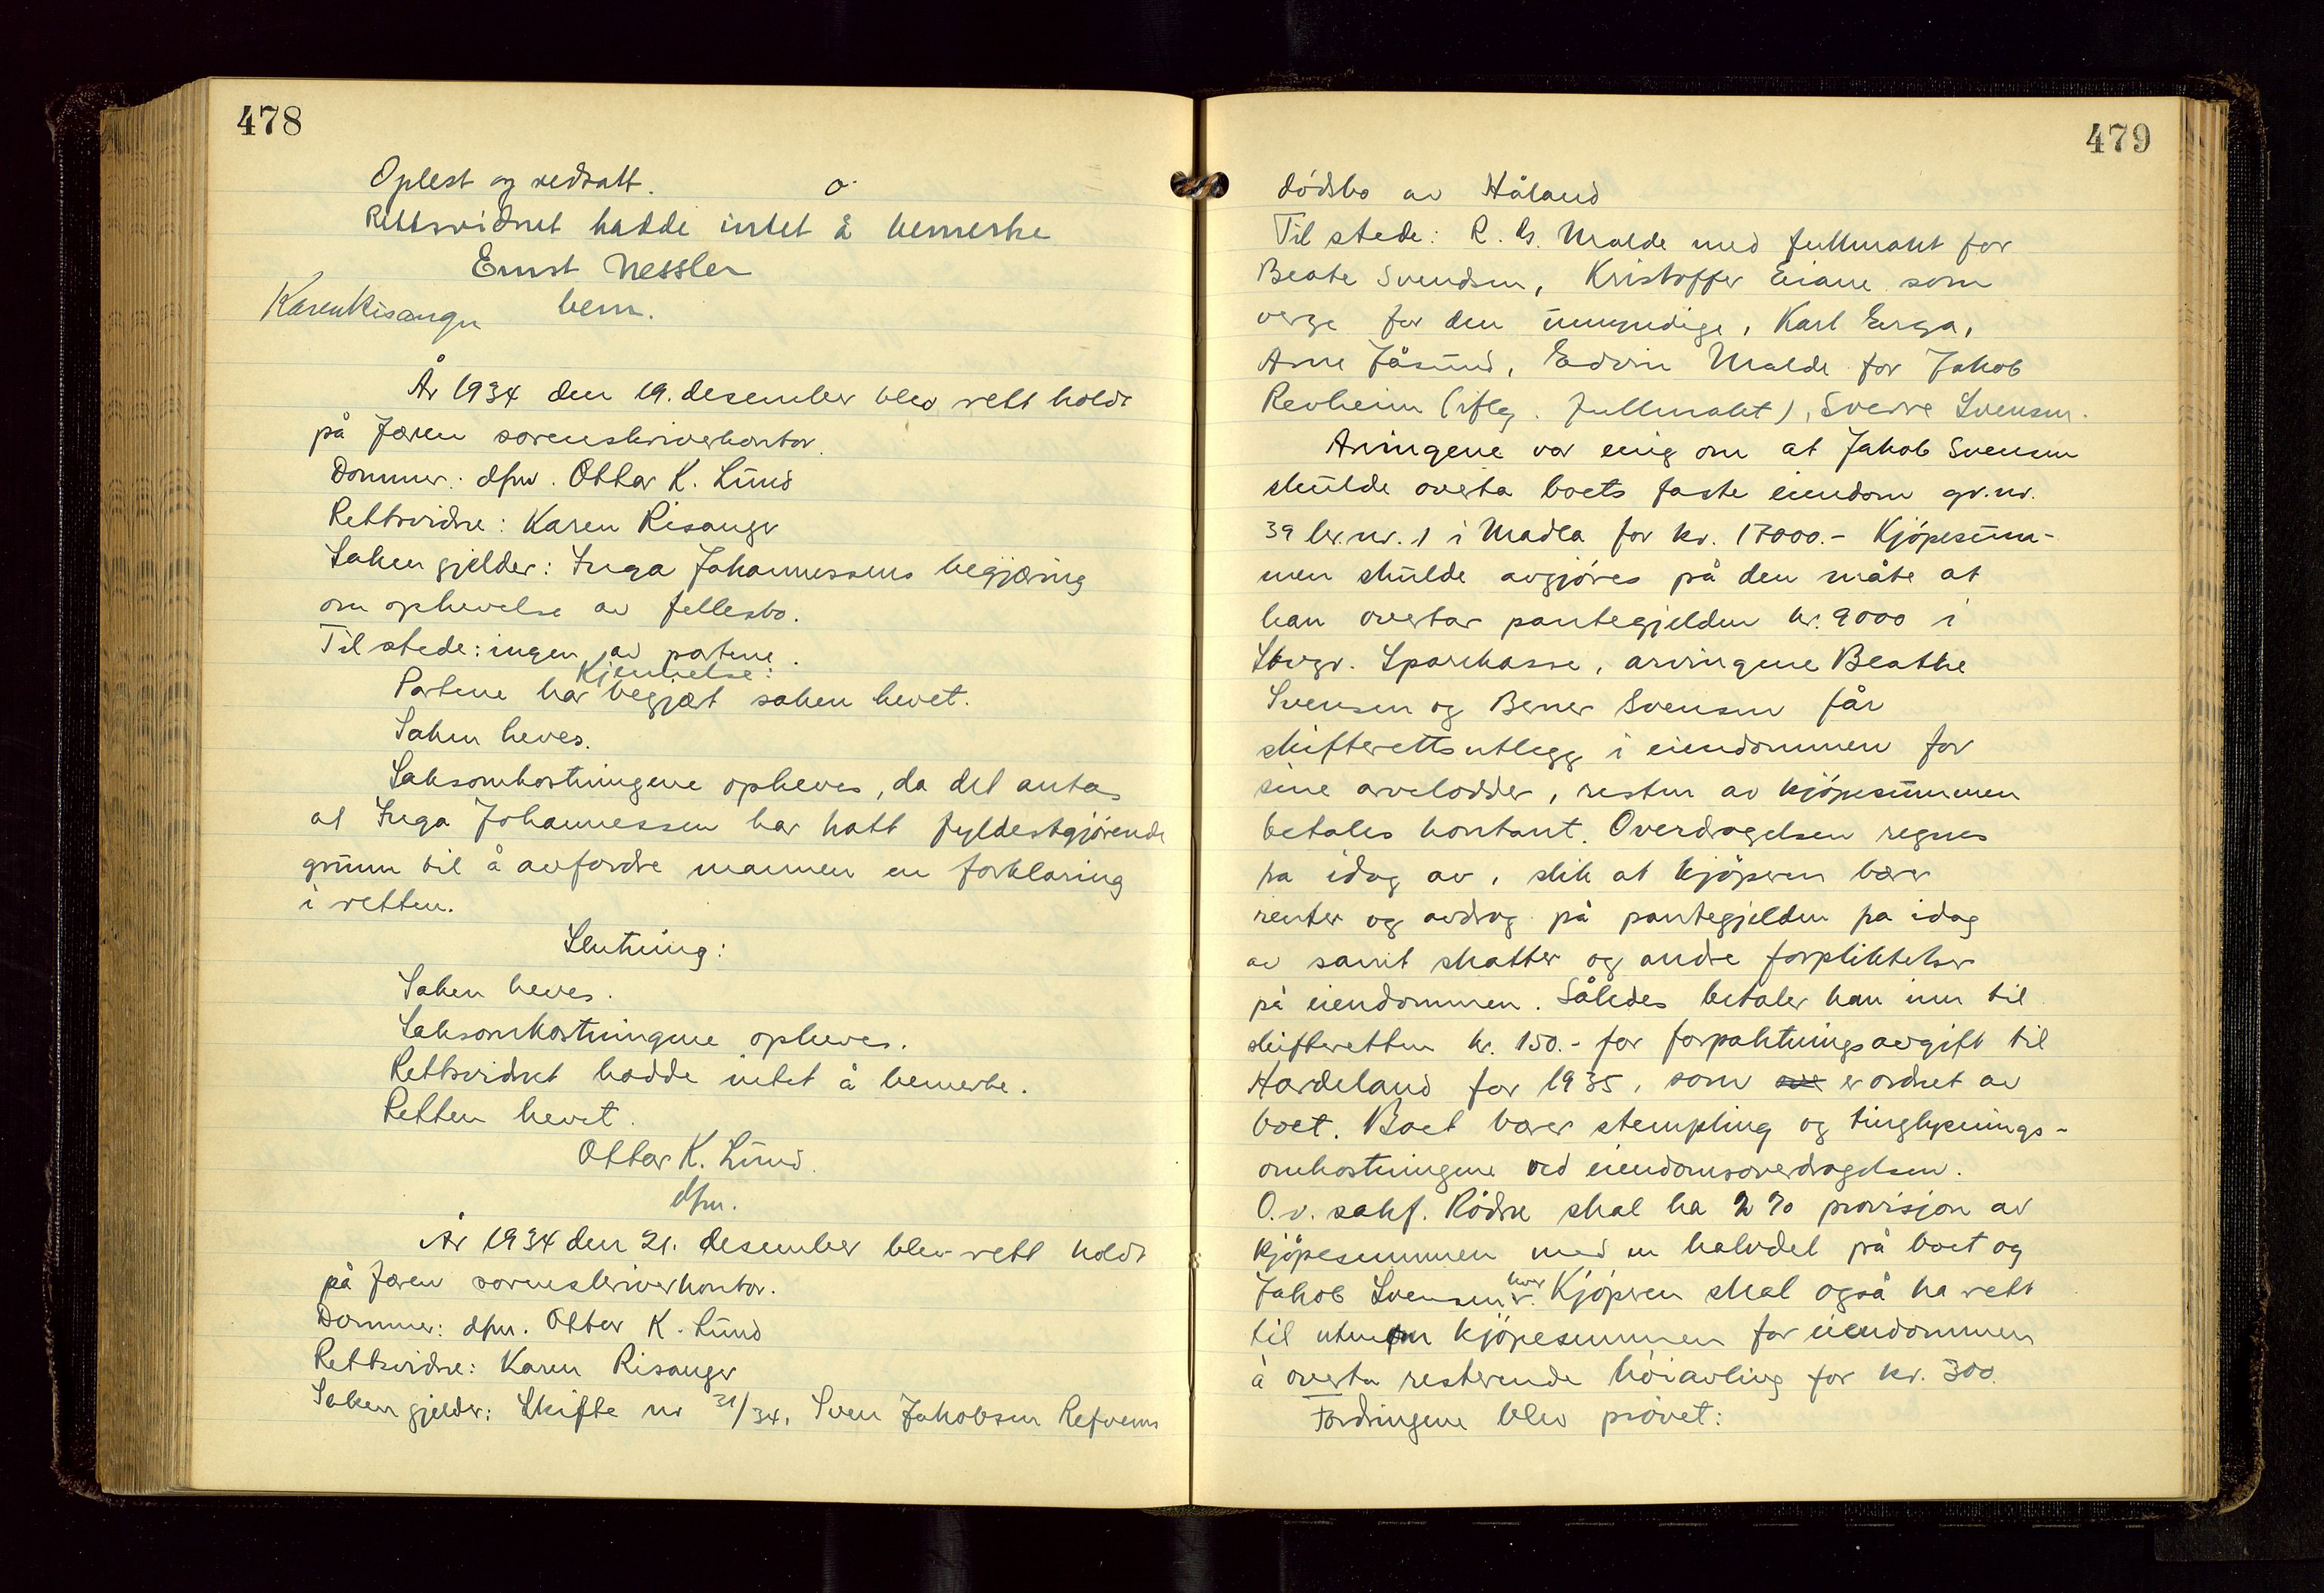 478
Oplest og vedtatt.
Rettsvidnet hadde intet å bemerke
Ernst Nessler
Karen Risanger bem.
År 1934 den 19. desember blev rett holdt
på Jæren sorenskriverkontor.
Dommer: dfm. Ottar K. Lund
Rettsvidne: Karen Risanger
Saken gjelder: Inga Johannessens begjæring
om ophevelse av fellesbo.
Til stede: ingen av partene.
Kjennelse:
Partene har begjært saken hevet.
Saken heves.
Saksomkostningene opheves, da det antas
at Inga Johannessen har hatt fyldestgjørende
grunn til å avfordre mannen en forklaring
i retten.
Slutning:
Saken heves.
Saksomkostningene opheves.
Rettsvidnet hadde intet å bemerke.
Retten hevet.
Ottar K. Lund.
dfm.
År 1934 den 21. desember blev rett holdt
på Jæren sorenskriverkontor.
Dommer: dfm. Ottar K. Lund
Rettsvidne: Karen Risanger
Saken gjelder: Skifte nr 31/34. Sven Jakobsen Refvems
479
dødsbo av Håland
Til stede: R. G. Malde med fullmakt for
Beate Svendsen, Kristoffer Eiane som
verge for den umyndige, Karl Erga,
Arne Jåsund, Edvin Malde for Jakob
Revheim (iflg. fullmakt), Sverre Svensen.
Arvingene var enig om at Jakob Svensen
skulde overta boets faste eiendom gr.nr.
39 br.nr. 1 i Madla for kr. 17000.- Kjøpesum-
men skulde avgjøres på den måte at
han overtar pantegjelden kr. 9000 i
Stvgr. Sparekasse, arvingene Beathe
Svensen og Berner Svensen får
skifterettsutlegg i eiendommen for
sine arvelodder, resten av kjøpesummen
betales kontant. Overdragelsen regnes
fra idag av, slik at kjøperen bærer
renter og avdrag på pantegjelden fra idag
av samt skatter og andre forpliktelser
på eiendommen. Således betaler han inn til
skifteretten kr. 150.- for forpaktningsavgift til
Hordeland for 1935, som er ordnet av
boet. Boet bærer stempling og tinglysnings-
omkostningene ved eiendomsoverdragelsen.
O.r. sakf. Rødne skal ha 2 % provisjon av
kjøpesummen med en halvdel på boet og
Jakob Svensen hver. Kjøperen skal også ha rett
til utenom kjøpesummen for eiendommen
å overta resterende høiavling for kr. 300.
Fordringene blev prøvet: